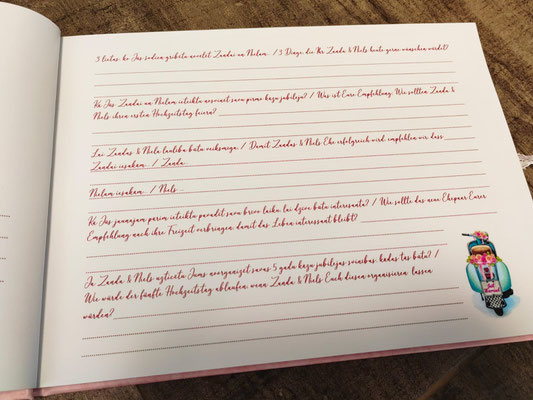 3 lietas, ko Jūs šodien gribētu novēlēt Zandai un Nielam... / 3 Dinge, die Ihr Zanda & Niels heute gerne wünschen würdet?
Kā Jūs Zandai un Nielam ieteiktu nosvinēt savu pirmo kāzu jubileju? / Was ist Eure Empfehlung, Wie sollten Zanda &
Niels ihren ersten Hochzeitstag feiern?
Lai Zandas & Niela laulība būtu veiksmīga, / Damit Zandas & Niels Ehe erfolgreich wird, empfehlen wir, dass...
Zandai iesakām... / Zanda...
Nielam iesakām... / Niels...
Kā Jūs jaunajam pārim ieteiktu pavadīt savu brīvo laiku, lai dzīve būtu interesanta? / Wie sollte das neue Ehepaar Eurer
Empfehlung nach ihre Freizeit verbringen, damit das Leben interessant bleibt?
Ja Zanda & Niels uzticētu Jums noorganizēt savas 5 gadu kāzu jubilejas svinības, kādas tās būtu? /
Wie würde der fünfte Hochzeitstag ablaufen, wenn Zanda & Niels Euch diesen organisieren lassen
würden?